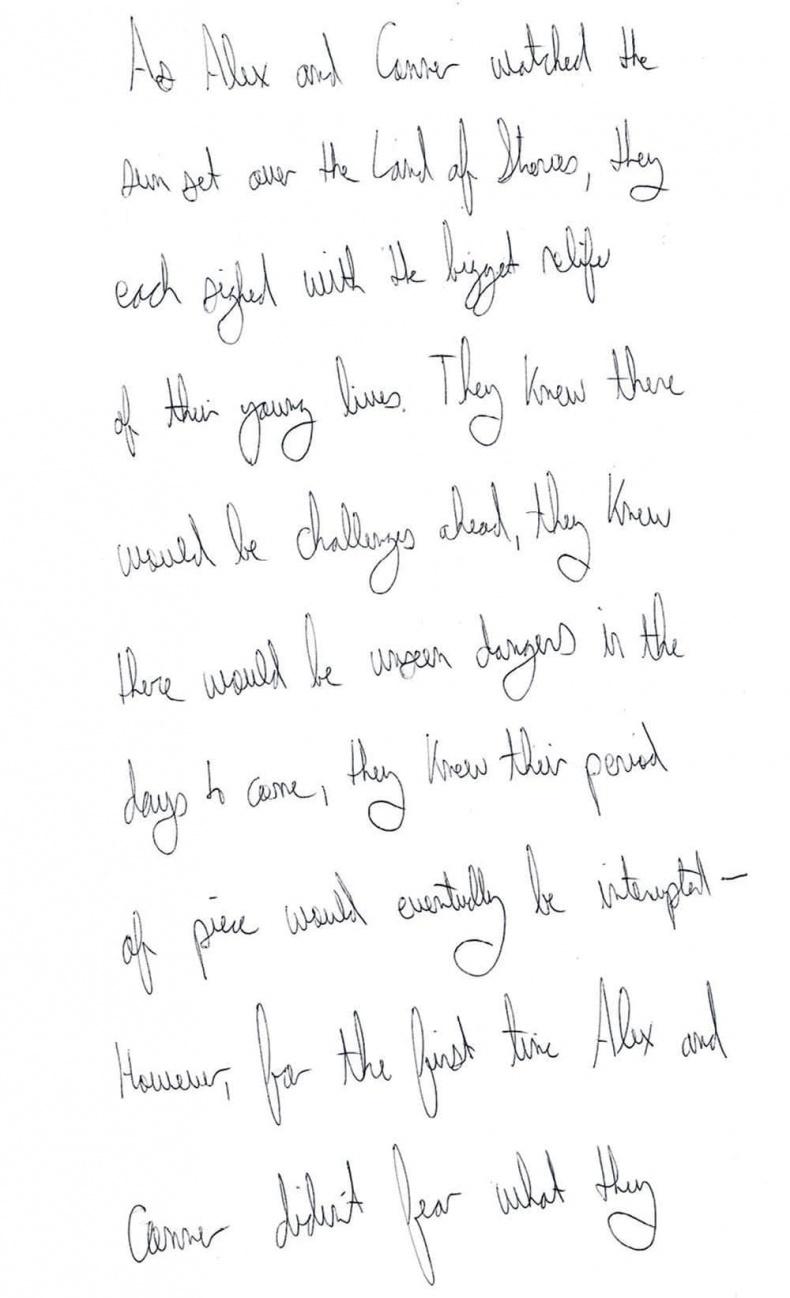 As Alex and Conner watched the
sun set over the Land of Stories, they
each sighed with the biggest relife
of their young lives. They knew there
would be challenges ahead, they knew
there would be unseen dangers in the
days to come, they knew their period
of piece would eventually be interupted —
However, for the first time Alex and
Conner didn't fear what they